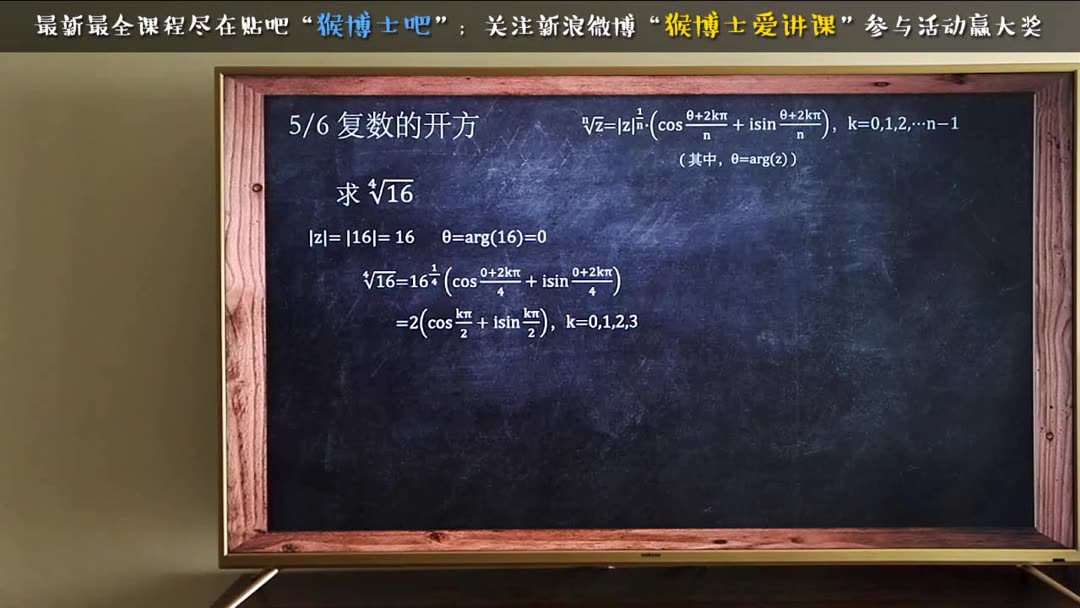 最新最全课程尽在贴吧“猴博士吧”；关注新浪微博“猴博士爱讲课”参与活动赢大奖
5/6 复数的开方
ⁿ√z=|z|^(1/n)·(cos (θ+2kπ)/n + isin (θ+2kπ)/n)，k=0,1,2,⋯n−1
（其中，θ=arg(z)）
求 ⁴√16
|z|= |16|= 16 θ=arg(16)=0
⁴√16=16^(1/4) (cos (0+2kπ)/4 + isin (0+2kπ)/4)
=2(cos kπ/2 + isin kπ/2)，k=0,1,2,3